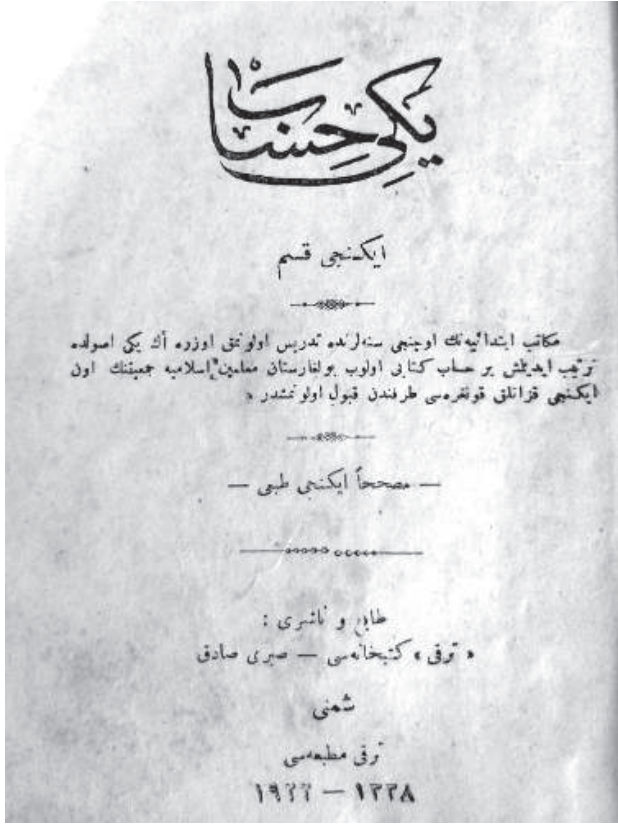 یكی حساب
ایكنجی قسم
مكاتب ابتدائیه‌نك اوچنجی سنه‌لرنده تدریس اولونمق اوزره أك یكی اصولده
ترتیب ایدیلمش بر حساب كتابی اولوب بولغارستان معلمین اسلامیه جمعیتنك اون
ایكنجی قزانلق قونغره‌سی طرفندن قبول اولونمشدر .
— مصححاً ایكنجی طبعی —
طابع و ناشری :
« ترقی » كتبخانه‌سی — صبری صادق
شمنی
ترقی مطبعه‌سی
١٣٣٨ — ١٩٢٢